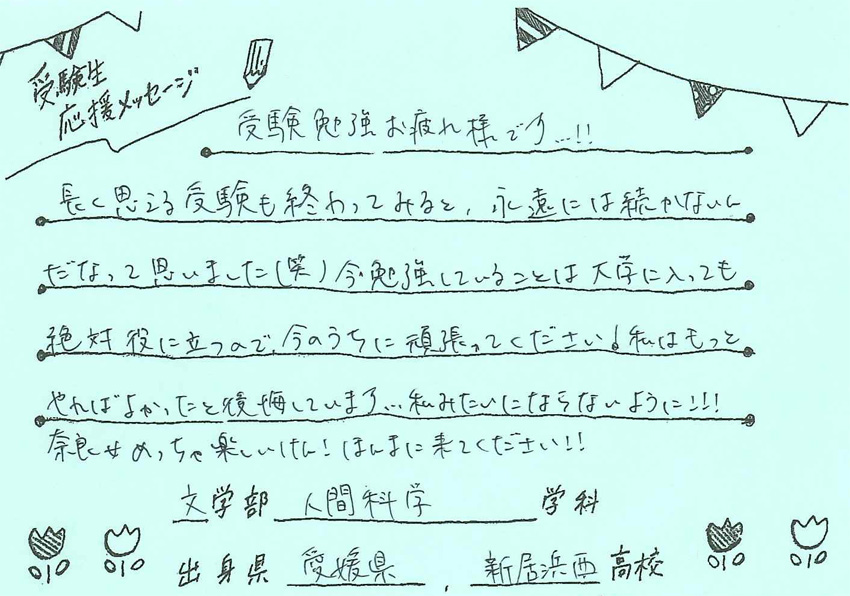 受験生
応援メッセージ
受験勉強お疲れ様です…!!
長く思える受験も終わってみると、永遠には続かないん
だなって思いました(笑)今勉強していることは大学に入っても
絶対役に立つので、今のうちに頑張ってください!私はもっと
やればよかったと後悔しています…私みたいにならないように!!!
奈良女めっちゃ楽しいけん!ほんまに来てください!!
文学部 人間科学 学科
出身県 愛媛県 , 新居浜西高校